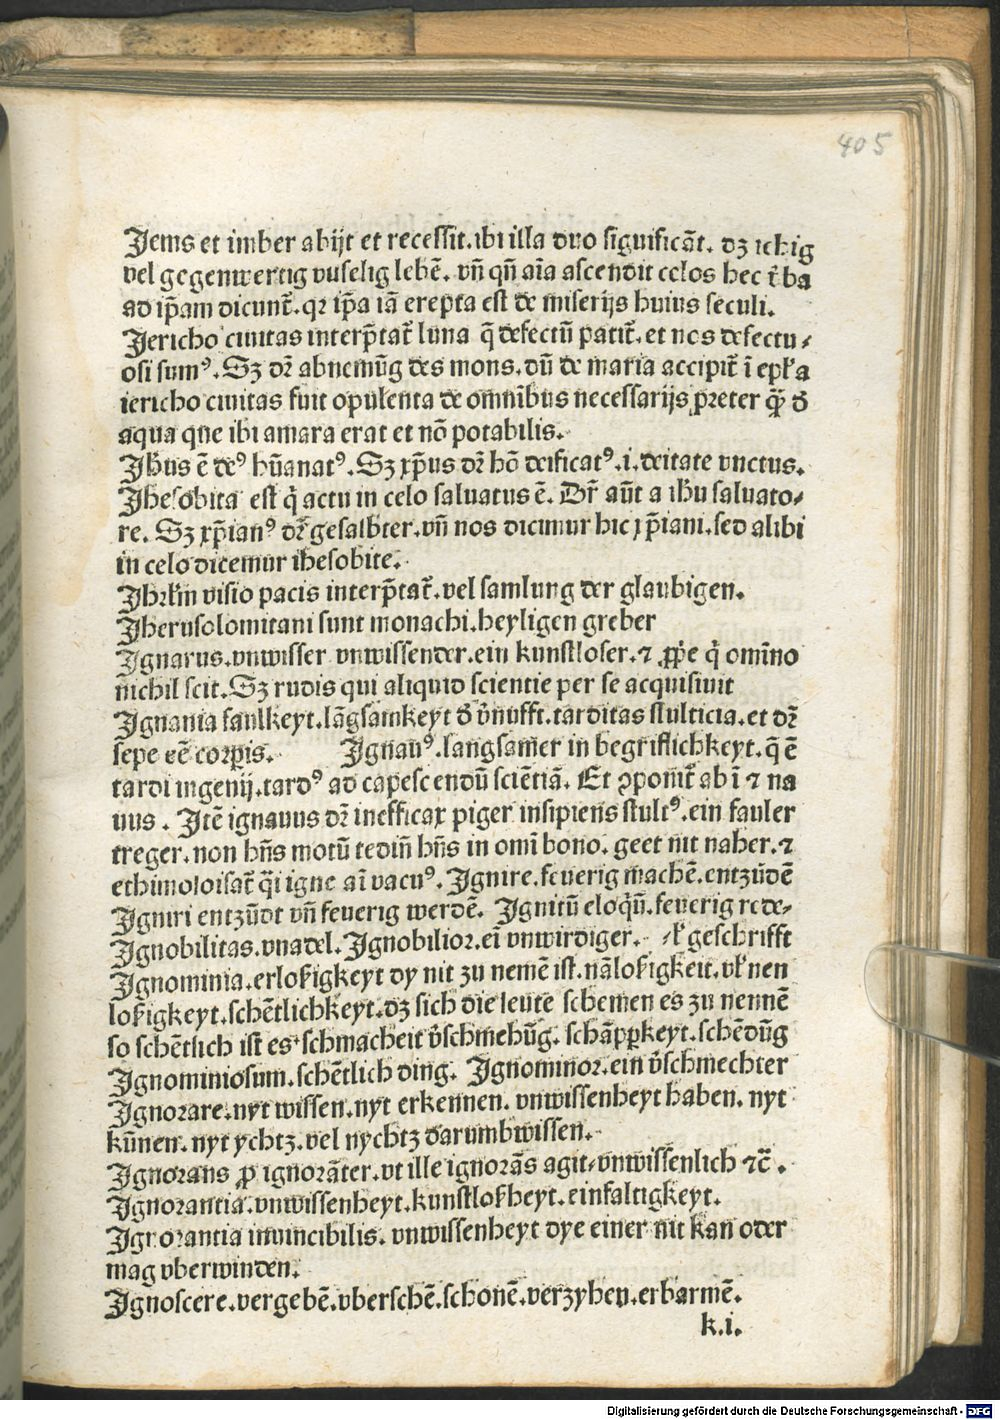 405
Jems et imber abijt et recessit. ibi illa duo significāt. dz ichig
vel gegenwertig vuselig lebē. vn̄ qn̄ aīa ascendit celos hec v̄ba
ad ip̄am dicunt̄. qr ip̄a iā erepta est de miserijs huius seculi.
Jericho ciuitas interp̄tat̄ luna q̄ defectū patit̄. et nos defectu⸗
osi sumꝰ. Sz dr̄ abnemūg des mons. dū de maria accipit̄ ī epl̄a
iericho ciuitas fuit opulenta de omnibus necessarijs preter qȝ̄ d̄
aqua que ibi amara erat et nō potabilis.
Jhūs ē deꝰ hūanatꝰ. Sz xp̄us dr̄ hō deificatꝰ. i. deitate vnctus.
Jhesobita est q̄ actu in celo saluatus ē. Dr̄ aūt a ihū saluato⸗
re. Sz xp̄ianꝰ dr̄ gesalbter. vn̄ nos dicimur hic xp̄iani. sed alibi
in celo dicemur ihesobite.
Jhrl̄m visio pacis interp̄tat̄. vel samlung der glaubigen.
Jherusolomitani sunt monachi. heyligen greber
Jgnarus. vnwisser vnwissender. ein kunstloser. ⁊ ꝓp̄e q̄ omīno
nichil scit. Sz rudis qui aliquid scientie per se acquisiuit
Jgnauia faulkeyt. lāgsamkeyt d̄ v̄nufft. tarditas stulticia. et dr̄
sepe eē corꝑis. Jgnauꝰ. langsamer in begrifflichkeyt. q̄ ē
tardi ingenij. tardꝰ ad capescendū sciētiā. Et ꝯponit̄ ab ī ⁊ na
uus. Jtē ignauus dr̄ inefficax piger insipiens stultꝰ. ein fauler
treger. non hn̄s motū tediū hn̄s in omī bono. geet nit naher. ⁊
ethimoloisat̄ q̄i igne aī vacuꝰ. Jgnire. feuerig machē. entzūdē
Jgniri entzūdt vn̄ feuerig werdē. Jgnitū eloqū. feuerig rede⸗
Jgnobilitas. vnadel. Jgnobilior. eī vnwirdiger. /l̄ geschrifft
Jgnominia. erloßigkeyt dy nit zu nemē ist. nāloßigkeit. vl̄ nen
loßigkeyt. schētlichkeyt. dz sich die leute schemen es zu nennē
so schētlich ist es schmacheit v̄schmehūg. schāpꝑkeyt. schēdūg
Jgnominiosum. schētlich ding. Jgnominor. ein v̄schmechter
Jgnorare. nyt wissen. nyt erkennen. vnwissenheyt haben. nyt
kūnen. nyt ychtz. vel nychtz darumbwissen.
Jgnorans ꝓ ignorāter. vt ille ignorās agit. vnwissenlich ⁊c̄.
Jgnorantia. vnwissenheyt. kunstloßheyt. einfaltigkeyt.
Jgnorantia inuincibilis. vnwissenheyt dye einer nit kan oder
mag vberwinden.
Jgnoscere. vergebē. vbersehē. schonē. verzyhen. erbarmē.
k.i.
Digitalisierung gefördert durch die Deutsche Forschungsgemeinschaft - DFG